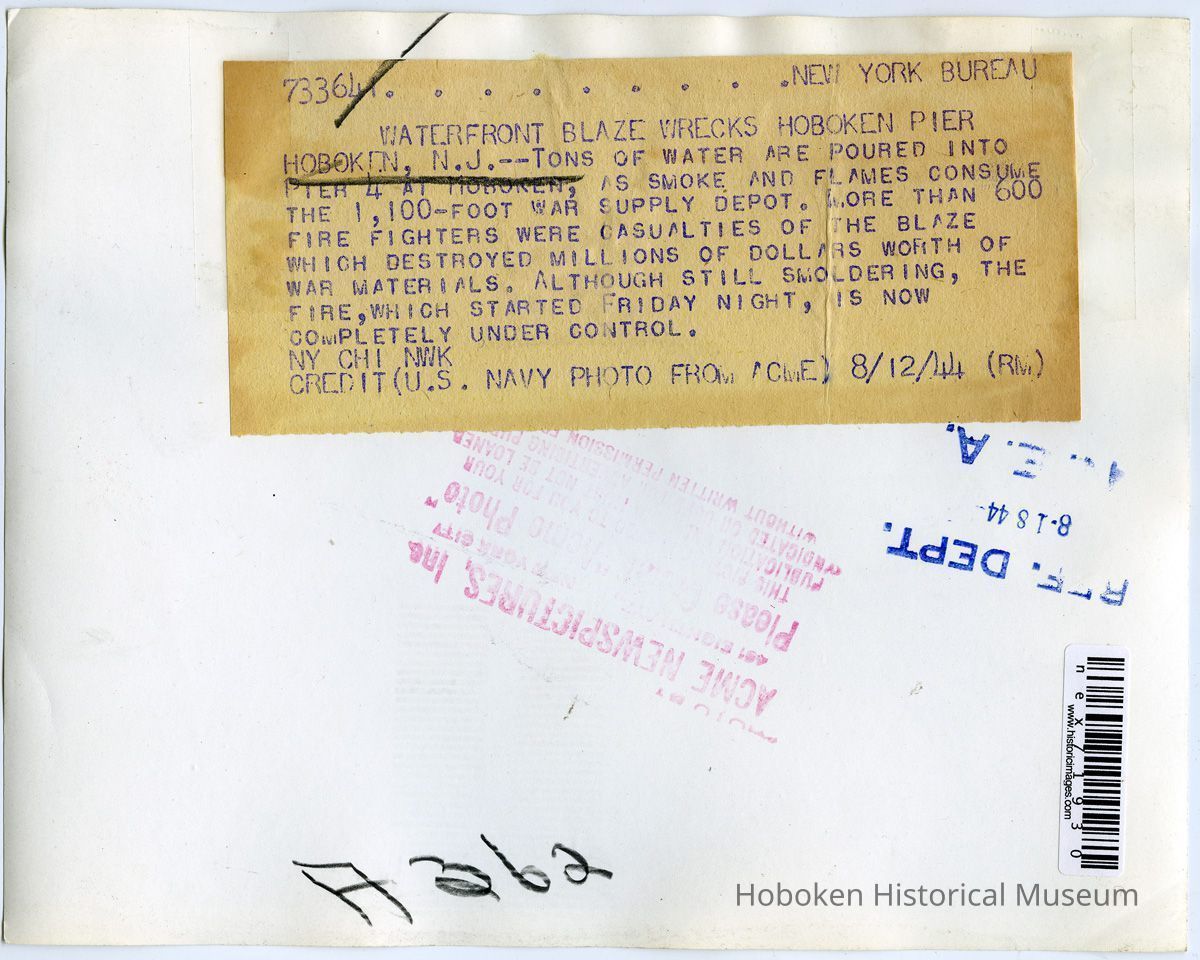 73364 . . . . . . . . .NEW YORK BUREAU
WATERFRONT BLAZE WRECKS HOBOKEN PIER
HOBOKEN, N.J.--TONS OF WATER ARE POURED INTO
PIER 4 AT HOBOKEN, AS SMOKE AND FLAMES CONSUME
THE 1,100-FOOT WAR SUPPLY DEPOT. MORE THAN 600
FIRE FIGHTERS WERE CASUALTIES OF THE BLAZE
WHICH DESTROYED MILLIONS OF DOLLARS WORTH OF
WAR MATERIALS. ALTHOUGH STILL SMOLDERING, THE
FIRE,WHICH STARTED FRIDAY NIGHT, IS NOW
COMPLETELY UNDER CONTROL.
NY CHI NWK
CREDIT(U.S. NAVY PHOTO FROM ACME) 8/12/44 (RM)
E. A.
8-18 44
REF. DEPT.
ACME NEWSPICTURES, Inc.
NEW YORK CITY
Please Photo"
THIS TO YOU FOR YOUR
PUBLICATION NOT BE LOANED
WITHOUT WRITTEN PERMISSION
nex71930
www.historicimages.com
Hoboken Historical Museum